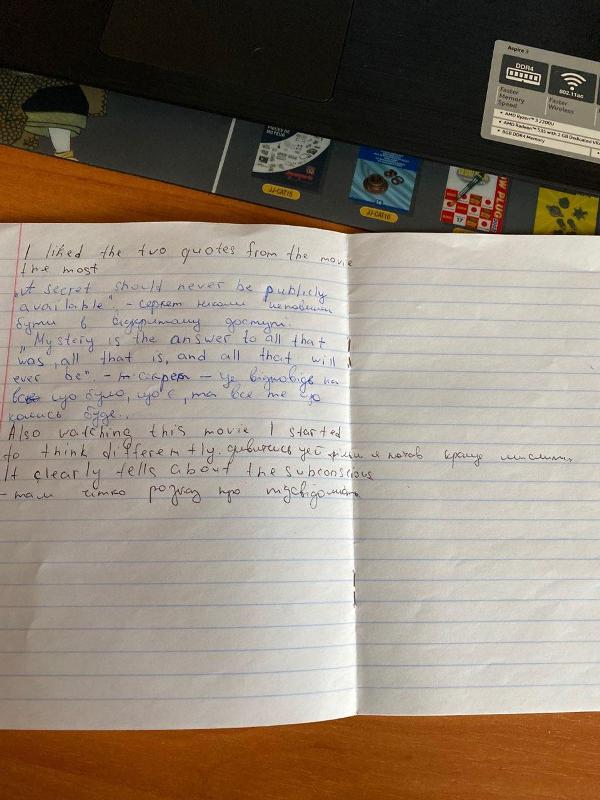 Aspire 3
DDR4
802.11ac
Faster
Memory
Speed
Faster
Wireless
• AMD Ryzen™ 3 2200U
• AMD Radeon™ 535 with 2 GB Dedicated
• 8GB DDR4 Memory
PIECES DE
MOTEUR
JJ-CAT15
JJ-CAT16
W PLUG
I liked the two quotes from the movie
the most
„A secret should never be publicly
available". – секрет ніколи неповинен
бути в відкритому доступі.
„Mystery is the answer to all that
was, all that is, and all that will
ever be". – – це відповідь на
все що було, що є, та все те що
колись буде..
Also watching this movie I started
to think differently. дивитись цей фільм я почав краще мислити
It clearly tells about the subconscious
– там чітко розказ про підсвідомість